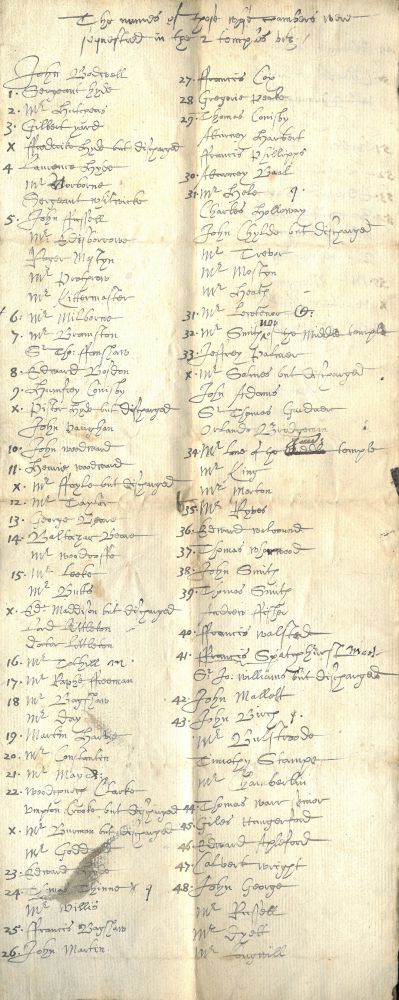 The names of those whose Chambers were
sequestred in the 2 temples viz
John Bodvell
1. Sergeant Hyde
2. Mr Hutchens
3. Gilbert yard
X Fredericke Hyde but discharged
4 Laurence Hyde
Mr Norborne
Sergeant
5. John Fussell
Mr Disborrowe
Roger Mostyn
Mr Prothero
Mr Kittermaster
6. Mr Milborne
7. Mr Bramston
Sr Tho: Fanshaw
8. Edward Boldon
9. Humfrey Conisby
X. Hyde but discharged
John Vaughan
10. John woodward
11. Henrie woodward
X. Mr Foyle but discharged
12. Mr Taylor
13. George Beare
14. Baltazar Beare
Mr
15. Mr Leeke
Mr Butts
X. Ed: Maddison but discharged
Lord Littleton
Doctor Littleton
16. Mr Tothill
17. Mr Raphe Freeman
18 Mr Bagshaw
Mr Day
19. Martin
20. Mr Constantin
21. Mr May
22. Clarke
Umpton Croke but discharged
X. Mr but discharged
Mr Goddard
23. Edward Hyde
24. Thinne X
Mr Willis
25. Francis Bagshaw
26. John Martin
27. Francis Cox
28 Gregorie
29. Thomas Conisby
Atturney Harbert
Francis Phillipps
30. Atturney Ball
31. Mr Hele
Charles Holloway
John Chylde but discharged
Mr Trevor
Mr Mostyn
Mr Heath
31. Mr
32. Mr Smith of the Middle temple
33. Jeffrey Palmer
X. Mr but discharged
John Adams
Sr Thomas Gardner
Orlando Bridgeman
34. Mr Lane of the temple
Mr King
Mr Morton
35. Mr Ryves
36. Edward
37. Thomas
38. John Smith
39. Thomas Smith
Andrew
40. Francis Walsted
41. Francis
Sr Jo: Williams but discharged
42. John Mallett
43. John Birch
Mr Bulstroode
Timothy Stampe
Mr Chamberlin
44. Thomas Warr senior
45. Giles Hungerford
46. Edward Apleford
47. Calvert Wright
48. John George
Mr Russell
Mr Dyett
Mr